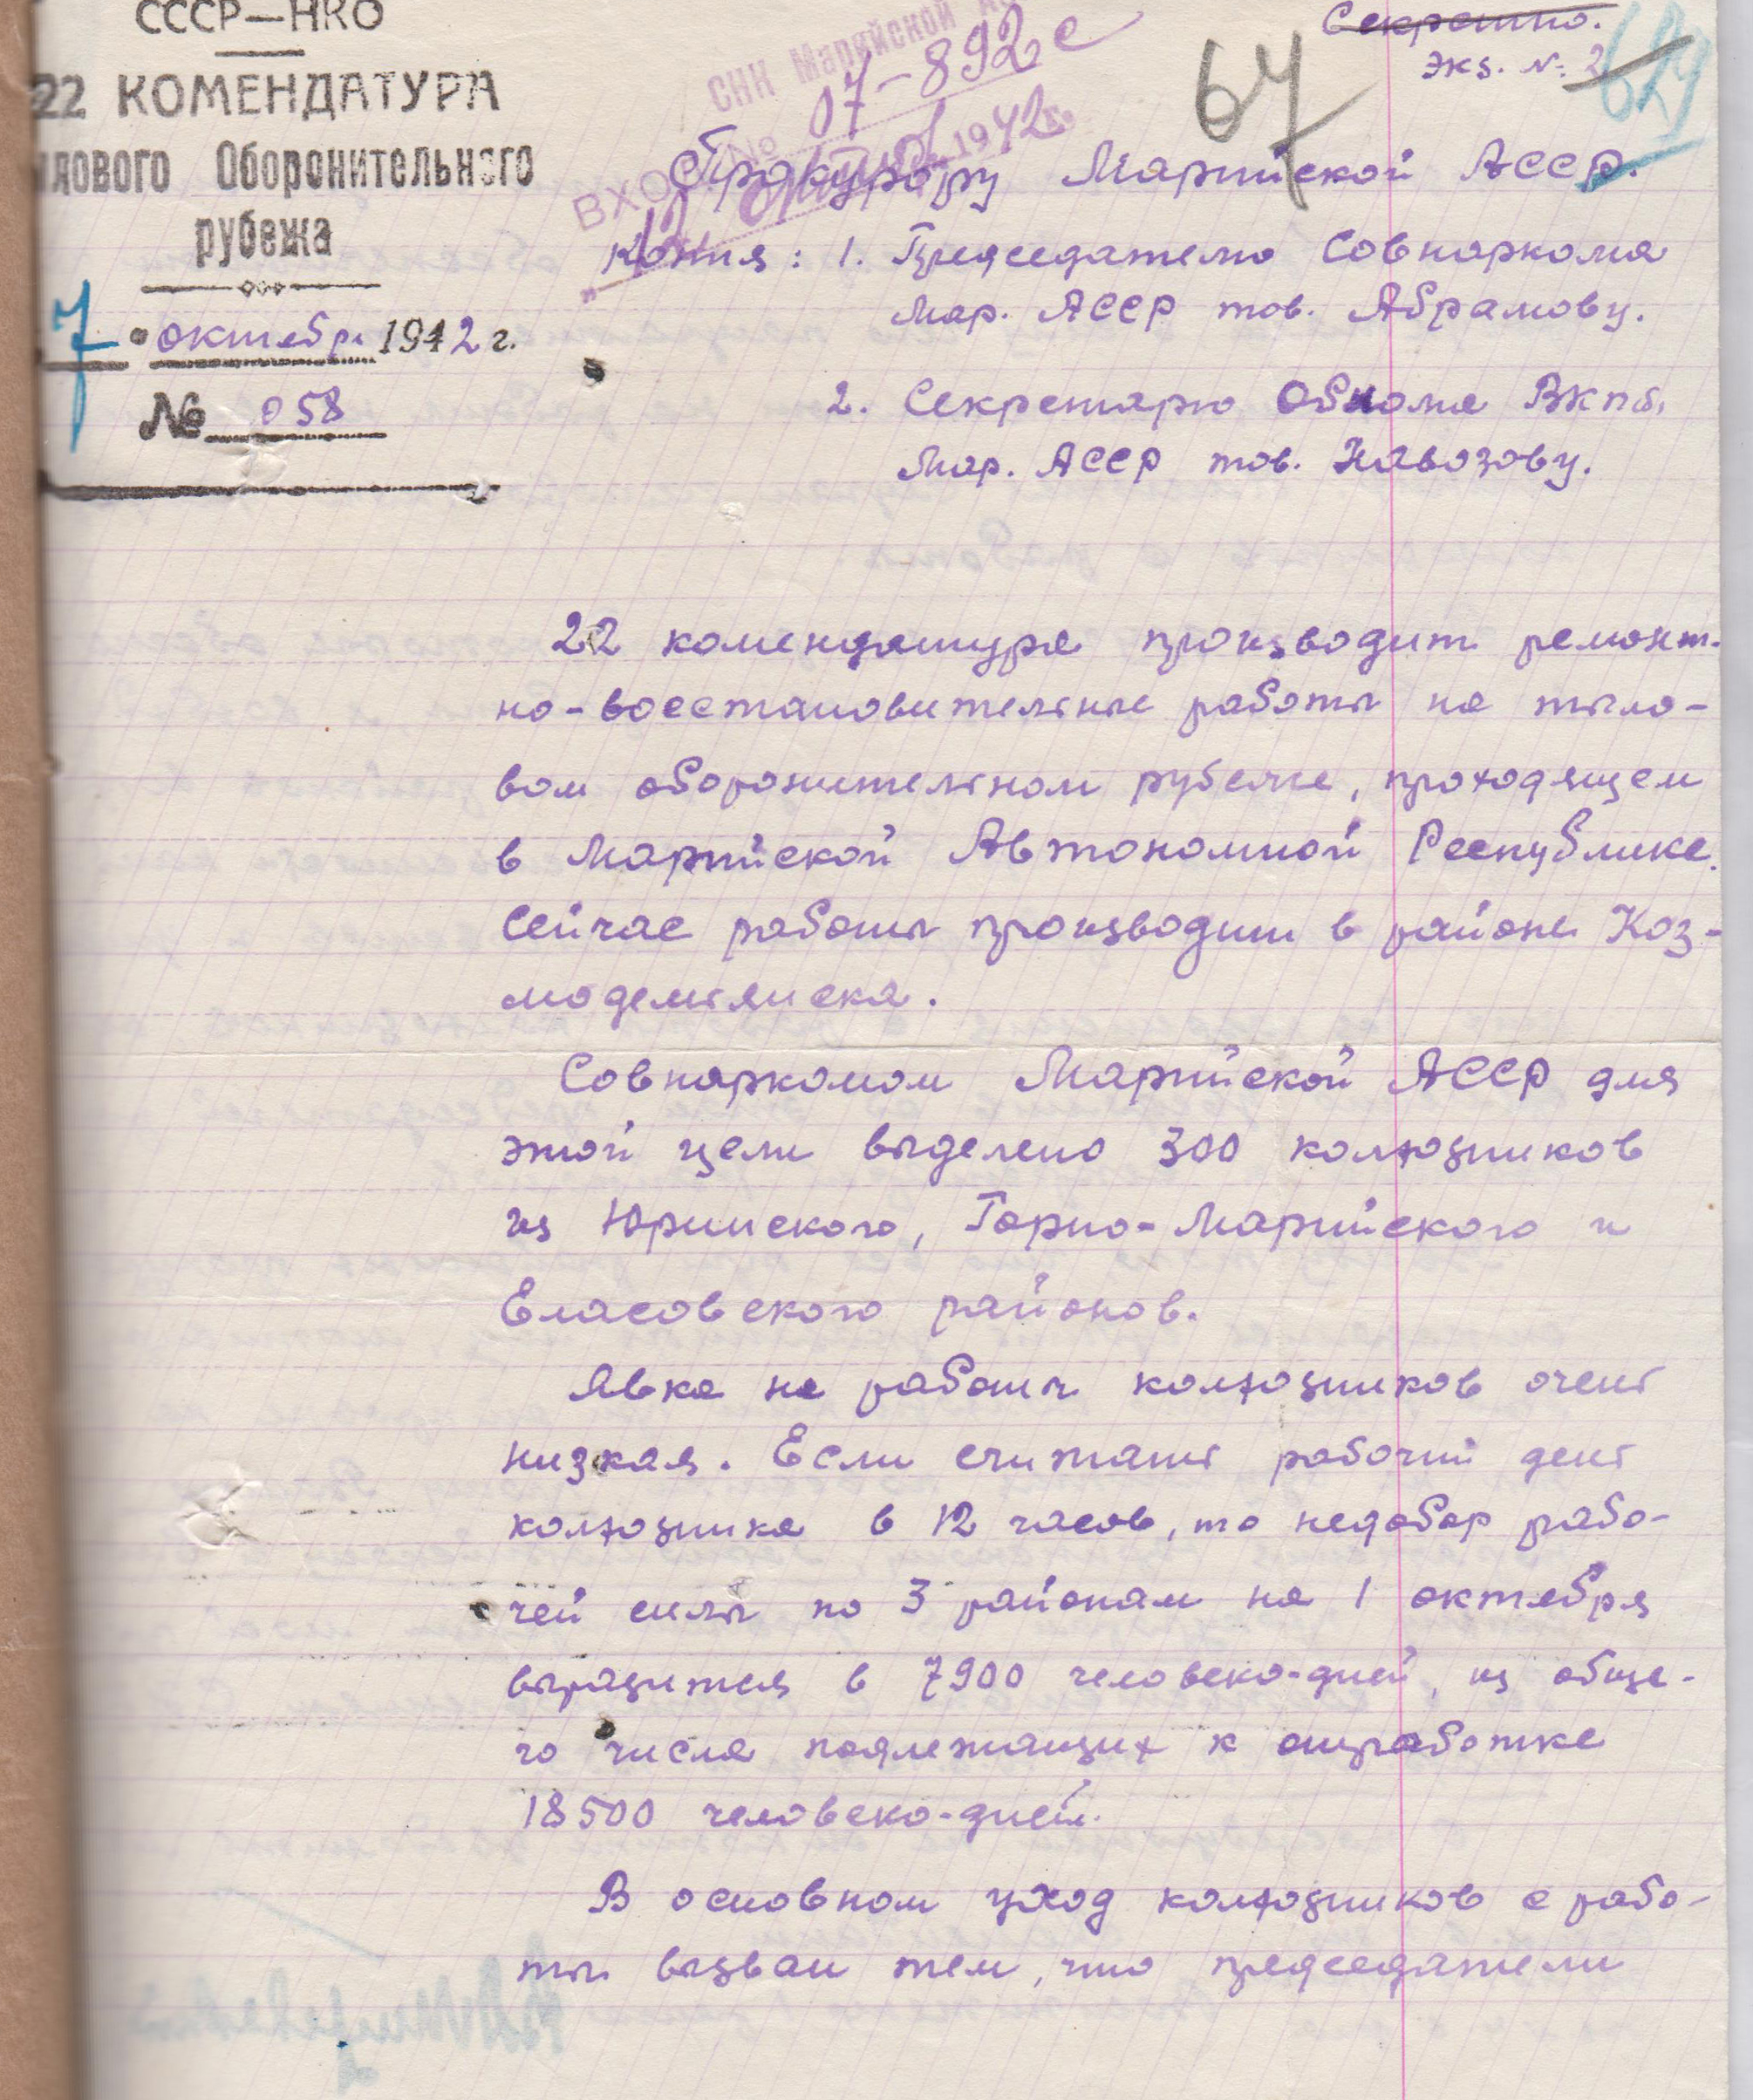 СССР—НКО
22 КОМЕНДАТУРА
лового Оборонительного
рубежа
7 октября 1942 г.
№ 058
СНК Марийской
№ 07-892с
1942г.
Секретно.
Экз. № 2
67
629
Прокурору Марийской АССР.
Копия: 1. Председателю Совнаркома
Мар. АССР тов. Абрамову.
2. Секретарю Обкома ВКПб,
Мар. АССР тов. Навозову.
22 комендатура производит ремонт-
но-восстановительные работы на тыло-
вом оборонительном рубеже, проходящем
в Марийской Автономной Республике.
Сейчас работы производит в районе Коз-
модемьянска.
Совнаркомом Марийской АССР для
этой цели выделено 300 колхозников
из Юринского, Горно-Марийского и
Еласовского районов.
Явка на работы колхозников очень
низкая. Если считать рабочий день
колхозника в 12 часов, то недобор рабо-
чей силы по 3 районам на 1 октября
выразится в 7900 человеко-дней, из обще-
го числа подлежащих к отработке
18500 человеко-дней.
В основном уход колхозников с рабо-
ты вызван тем, что председатели